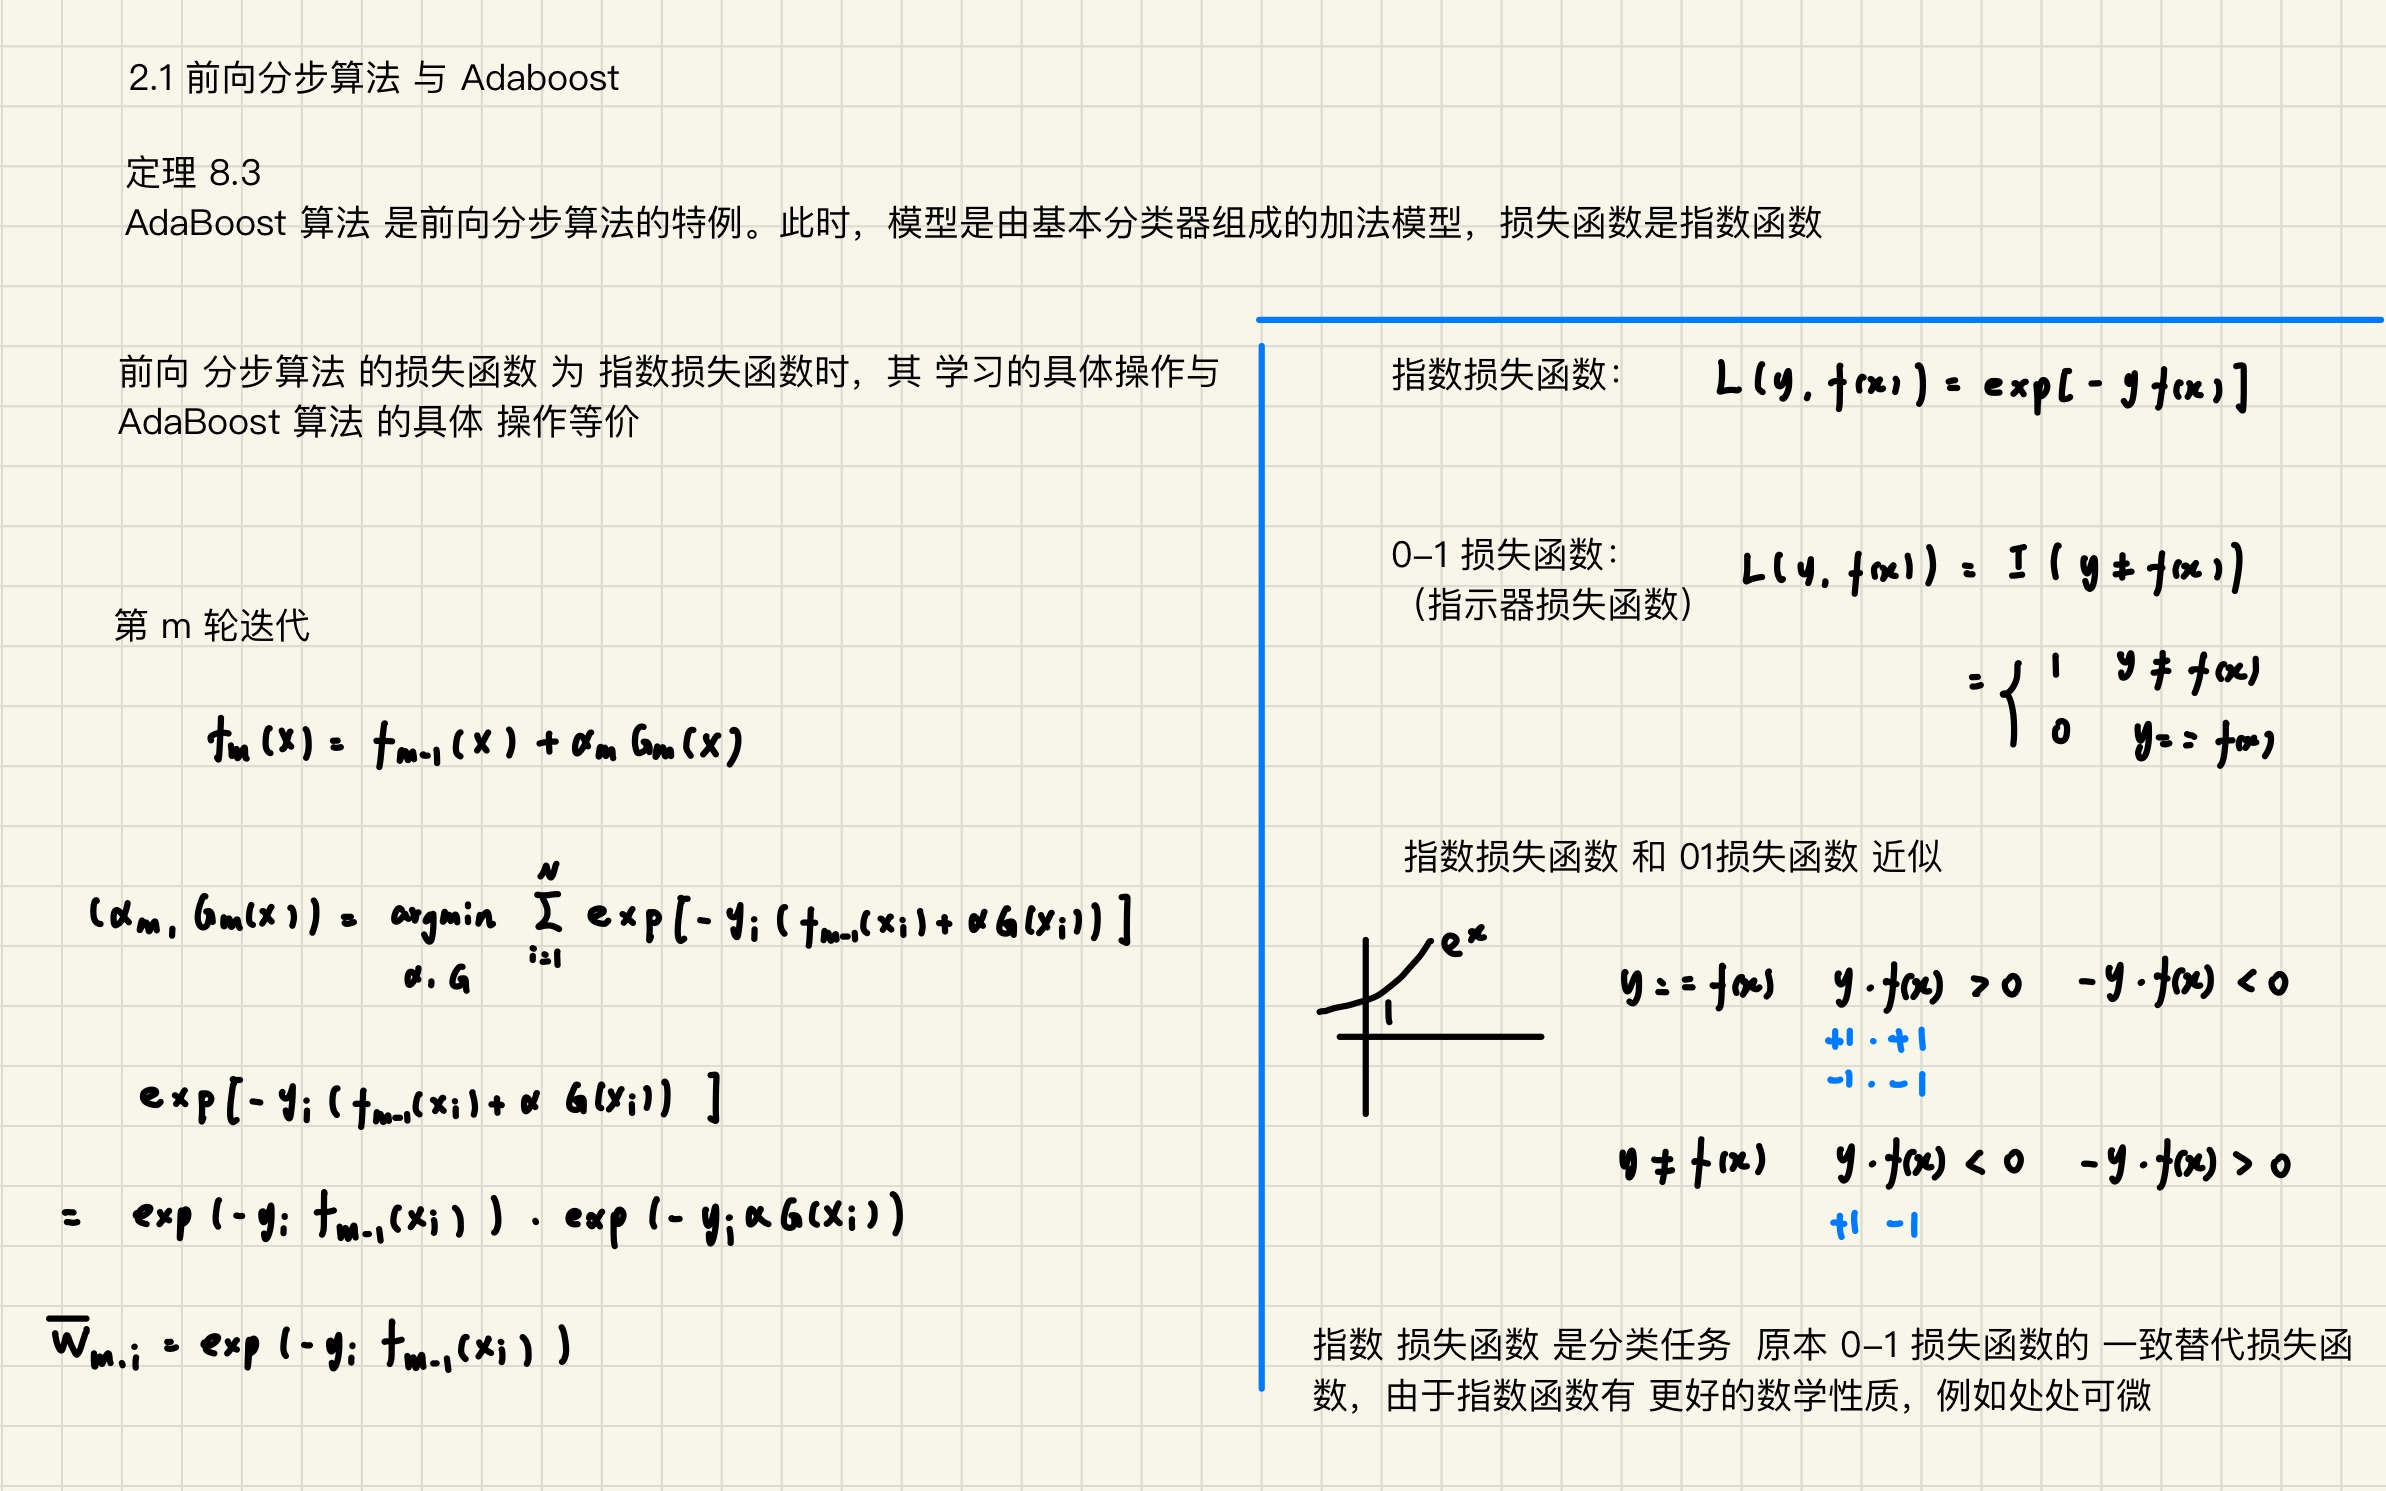 2.1 前向分步算法 与 Adaboost
定理 8.3
AdaBoost 算法 是前向分步算法的特例。此时，模型是由基本分类器组成的加法模型，损失函数是指数函数
前向 分步算法 的损失函数 为 指数损失函数时，其 学习的具体操作与
AdaBoost 算法 的具体 操作等价
第 m 轮迭代
f_m(x) = f_{m-1}(x) + α_m G_m(x)
(α_m, G_m(x)) = argmin_{α, G} Σ_{i=1}^{N} exp[-y_i (f_{m-1}(x_i) + αG(x_i))]
exp[-y_i (f_{m-1}(x_i) + α G(x_i))]
= exp(-y_i f_{m-1}(x_i)) · exp(-y_i αG(x_i))
w̅_{m,i} = exp(-y_i f_{m-1}(x_i))
指数损失函数： L(y, f(x)) = exp[-y f(x)]
0-1 损失函数： L(y, f(x)) = I(y ≠ f(x))
（指示器损失函数）
= { 1 y ≠ f(x)
0 y == f(x)
指数损失函数 和 01损失函数 近似
e^x
1
y == f(x) y·f(x) > 0 -y·f(x) < 0
+1 · +1
-1 · -1
y ≠ f(x) y·f(x) < 0 -y·f(x) > 0
+1 -1
指数 损失函数 是分类任务 原本 0-1 损失函数的 一致替代损失函
数，由于指数函数有 更好的数学性质，例如处处可微